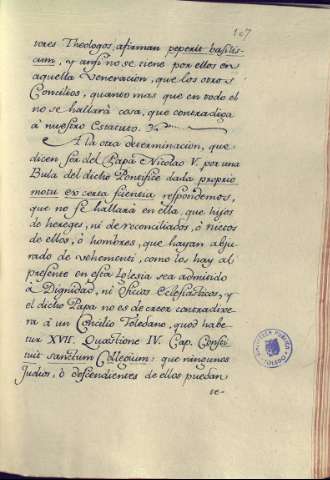 107
tores Theologos afirman peperit basilis-
cum, y ansi no se tiene por ellos en
aquella Veneracion, que los otros
Concilios, quanto mas que en todo el
no se hallarà cosa, que contradiga
à nuestro Estatuto.
A la otra determinacion, que
dicen, ser del Papa Nicolao V. por una
Bula del dicho Pontifice dada proprio
motu ex certa scientia respondemos,
que no se hallarà en ella, que hijos
de hereges, ni de reconciliados, ò nietos
de ellos, ò hombres, que hayan abju-
rado de vehementi, como les hay al
presente en esta Iglesia sea admitido
à Dignidad, ni Oficios Eclesiasticos, y
el dicho Papa no es de creer contradixe-
ra à un Concilio Toledano, quod habe-
tur XVII. Quæstione IV. Cap. Consti-
tuit sanctum Collegium: que ningunos
Judios, ò descendientes de ellos puedan
te-
BIBLIOTECA PUBLICA
TOLEDO